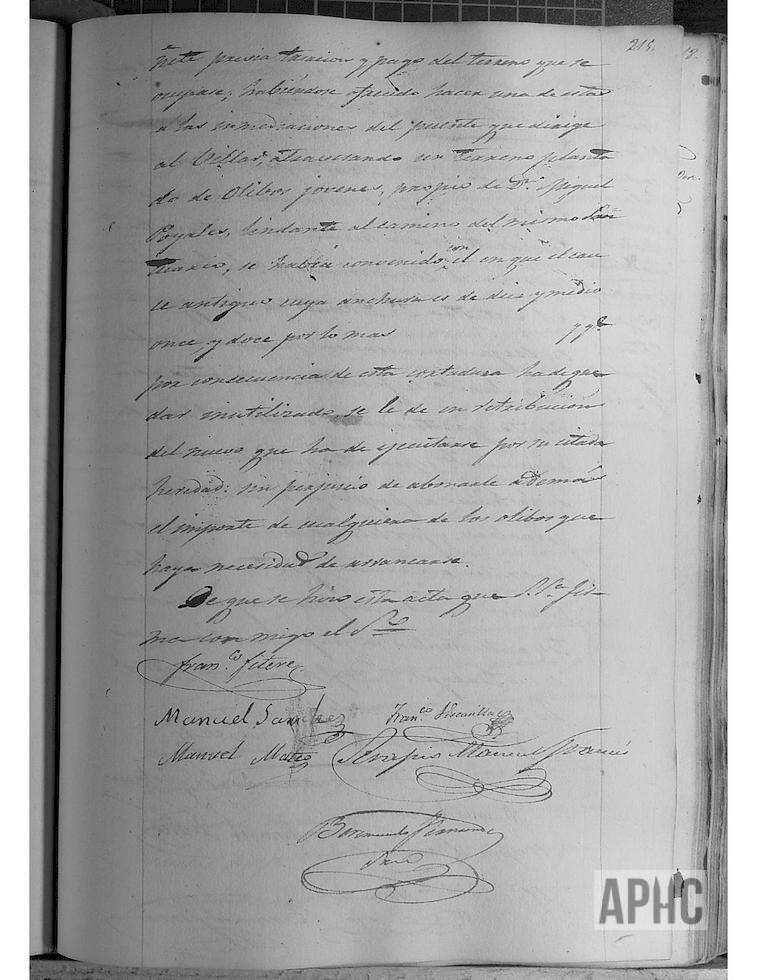 215.
ñete previa tasacion y pago del terreno que se
ocupase; habiéndose ofrecido hacer una de estas
a las inmediaciones del puente que dirige
al Villar, atravesando un terreno planta
do de Olibos jovenes, propio de Dn Miguel
Poyales, lindante al camino del mismo San
tuario, se había convenido con el en que el cau
ce antiguo cuya anchura es de diez y medio
once, y doce por lo mas y qe
por consecuencia de esta cortadura ha de que
dar inutilizado, se le de en retribucion
del nuevo que ha de ejecutarse por su citada
heredad: sin perjuicio de abonarle ademas
el importe de cualquiera de los olibos que
haya necesidad de arrancarse.
De que se hizo esta acta que S. Sa fir-
ma con migo el Srio
Franco Fitero
Manuel Sanchez Franco
Manuel Mateo Serapio Manuel
Beremundo
Srio
APHC